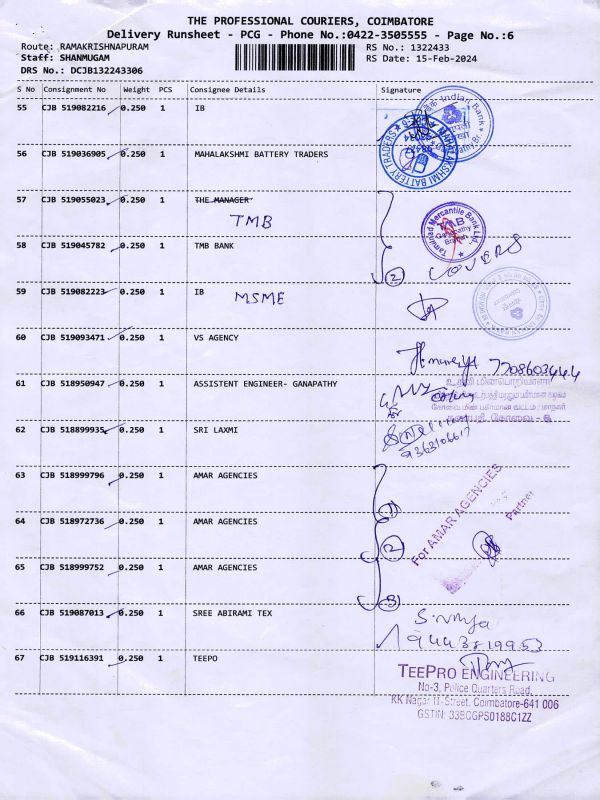 THE PROFESSIONAL COURIERS, COIMBATORE
Delivery Runsheet - PCG - Phone No.:0422-3505555 - Page No.:6
Route: RAMAKRISHNAPURAM
RS No.: 1322433
Staff: SHANMUGAM
RS Date: 15-Feb-2024
DRS No.: DCJB132243306
S No Consignment No Weight PCS Consignee Details Signature
55 CJB 519082216 0.250 1 IB
Indian Bank
56 CJB 519036905 0.250 1 MAHALAKSHMI BATTERY TRADERS
MAHALAKSHMI BATTERY TRADERS
57 CJB 519055023 0.250 1 THE MANAGER
TMB
Tamilnad Mercantile Bank Ltd.
TMB
Ganapathy
Branch
58 CJB 519045782 0.250 1 TMB BANK
2 COVERS
59 CJB 519082223 0.250 1 IB MSME
60 CJB 519093471 0.250 1 VS AGENCY
7708603444
61 CJB 518950947 0.250 1 ASSISTENT ENGINEER- GANAPATHY
உதவி மின்பொறியாளர்
62 CJB 518899935 0.250 1 SRI LAXMI
9363106617
63 CJB 518999796 0.250 1 AMAR AGENCIES
1
For AMAR AGENCIES
Partner
64 CJB 518972736 0.250 1 AMAR AGENCIES
2
65 CJB 518999752 0.250 1 AMAR AGENCIES
3
66 CJB 519087013 0.250 1 SREE ABIRAMI TEX
9443819953
67 CJB 519116391 0.250 1 TEEPO
TEEPRO ENGINEERING
No-3, Police Quarters Road,
KK Nagar II-Street, Coimbatore-641 006
GSTIN: 33BCGPS0188C1ZZ